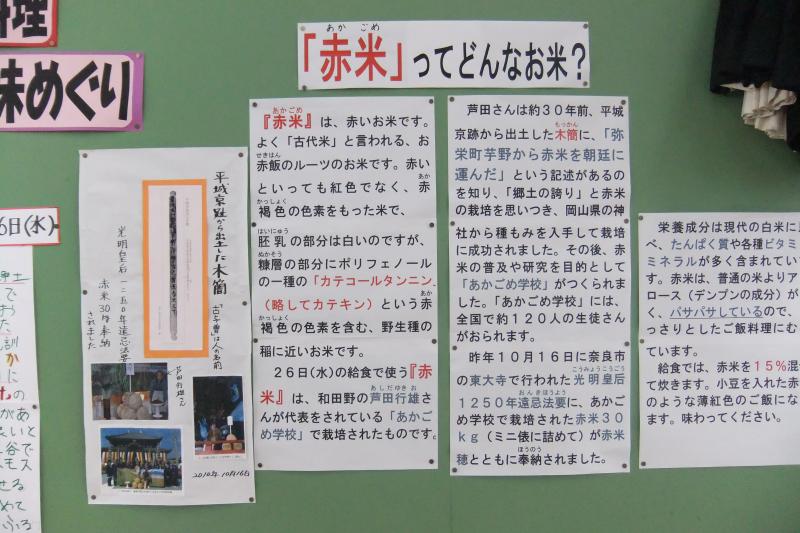 料理
味めぐり
6日(水)
「赤米」ってどんなお米？
あか ごめ
平城京趾から出土した木簡
「古与曽」は人の名前
光明皇后一二五〇年遠忌法要
赤米30kg奉納
されました
芦田行雄さん
2010年10月16日
あかごめ
『赤米』は、赤いお米です。
よく「古代米」と言われる、お
せきはん
赤飯のルーツのお米です。赤い
あか
といっても紅色でなく、赤
かっしょく
褐色の色素をもった米で、
はいにゅう
胚乳の部分は白いのですが、
ぬかそう
糠層の部分にポリフェノール
の一種の「カテコールタンニン
（略してカテキン）という赤
かっしょく あか
褐色の色素を含む、野生種の
稲に近いお米です。
２６日(水)の給食で使う『赤
あしだゆきお
米』は、和田野の芦田行雄さ
んが代表をされている「あかご
め学校」で栽培されたものです。
芦田さんは約３０年前、平城
もっかん
京跡から出土した木簡に、「弥
栄町芋野から赤米を朝廷に
運んだ」という記述があるの
を知り、「郷土の誇り」と赤米
の栽培を思いつき、岡山県の神
社から種もみを入手して栽培
に成功されました。その後、赤
米の普及や研究を目的として
「あかごめ学校」がつくられま
した。「あかごめ学校」には、
全国で約１２０人の生徒さん
がおられます。
昨年１０月１６日に奈良市
こうみょうこうごう
の東大寺で行われた光明皇后
おんきほうよう
1250年遠忌法要に、あかご
め学校で栽培された赤米30
kg（ミニ俵に詰めて）が赤米
ほうのう
穂とともに奉納されました。
栄養成分は現代の白米に
べ、たんぱく質や各種ビタミ
ミネラルが多く含まれてい
す。赤米は、普通の米よりア
ロース（デンプンの成分）が
く、パサパサしているので、
っさりとしたご飯料理にむ
ています。
給食では、赤米を１５％混
て炊きます。小豆を入れた赤
のような薄紅色のご飯にな
ます。味わってください。